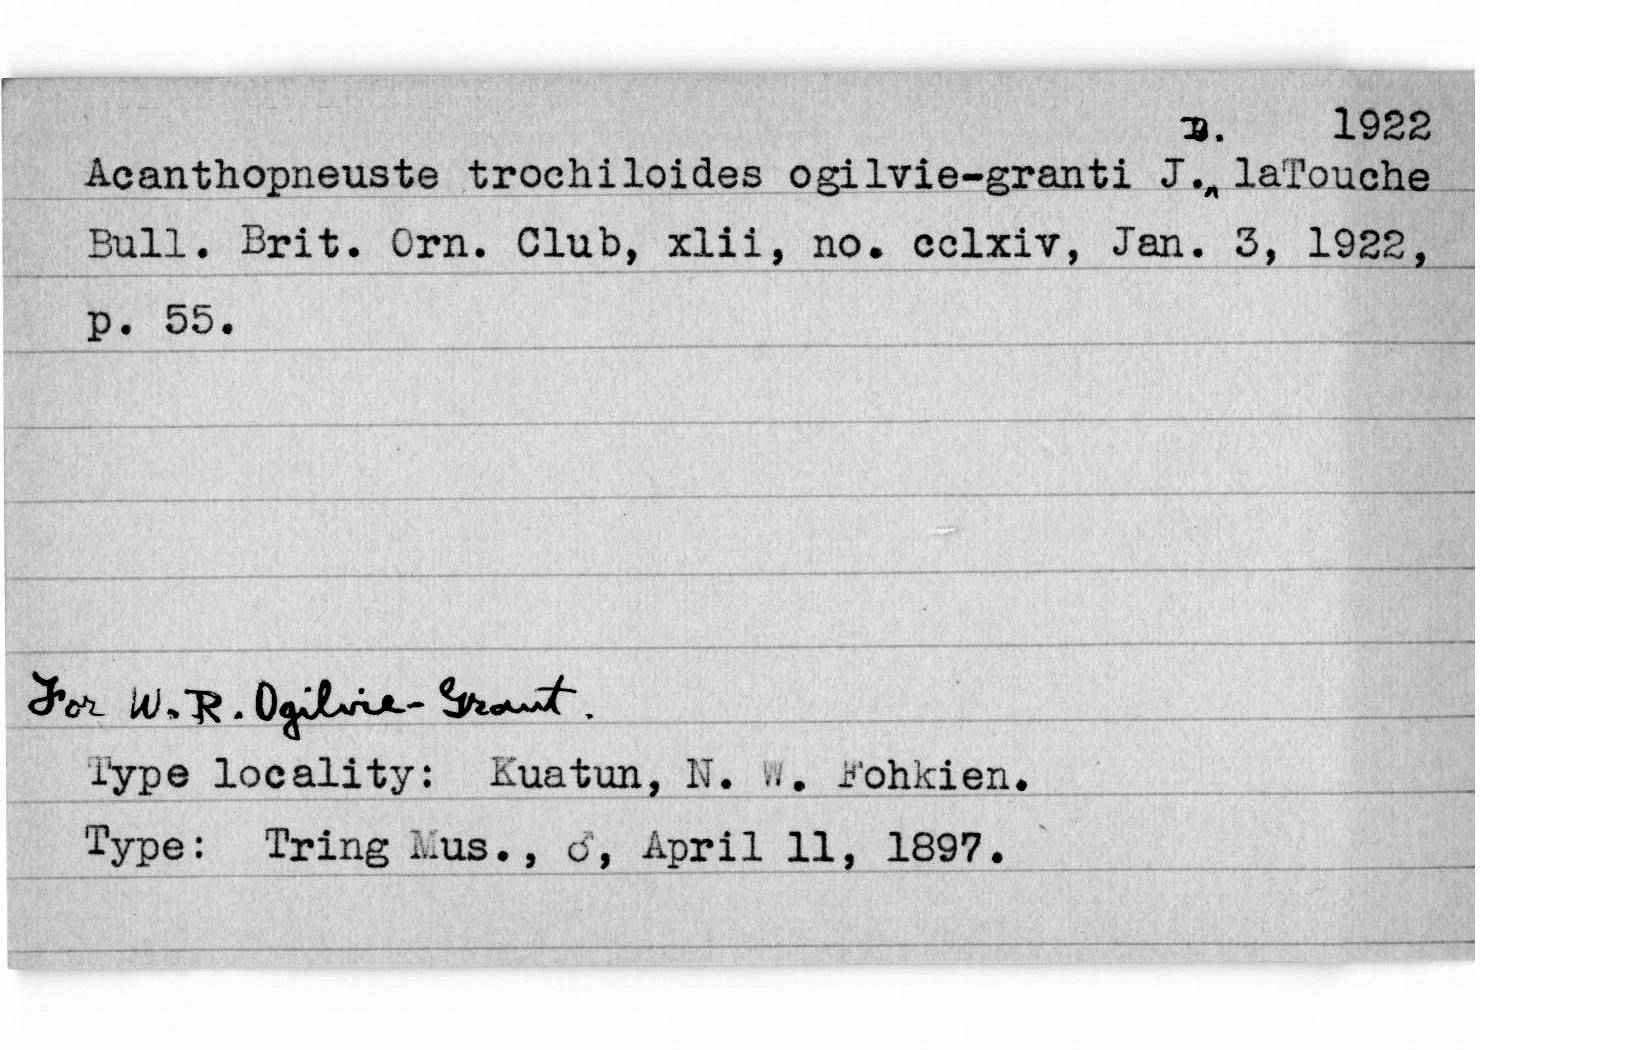 D. 1922
Acanthopneuste trochiloides ogilvie-granti J.‸ laTouche
Bull. Brit. Orn. Club, xlii, no. cclxiv, Jan. 3, 1922,
p. 55.
For W. R. Ogilvie-Grant.
Type locality: Kuatun, N. W. Fohkien.
Type: Tring Mus., ♂, April 11, 1897.